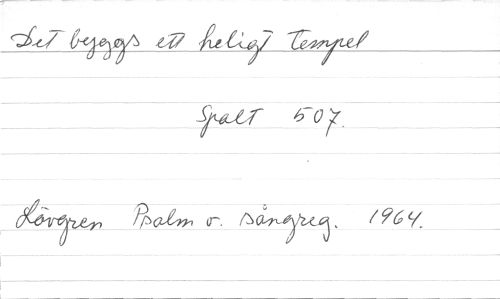 Det byggs ett heligt tempel
Spalt 507.
Lövgren Psalm o. sångreg. 1964.